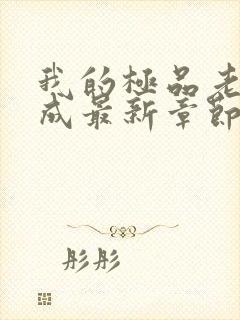 我的極品老
成最新章節
彤彤